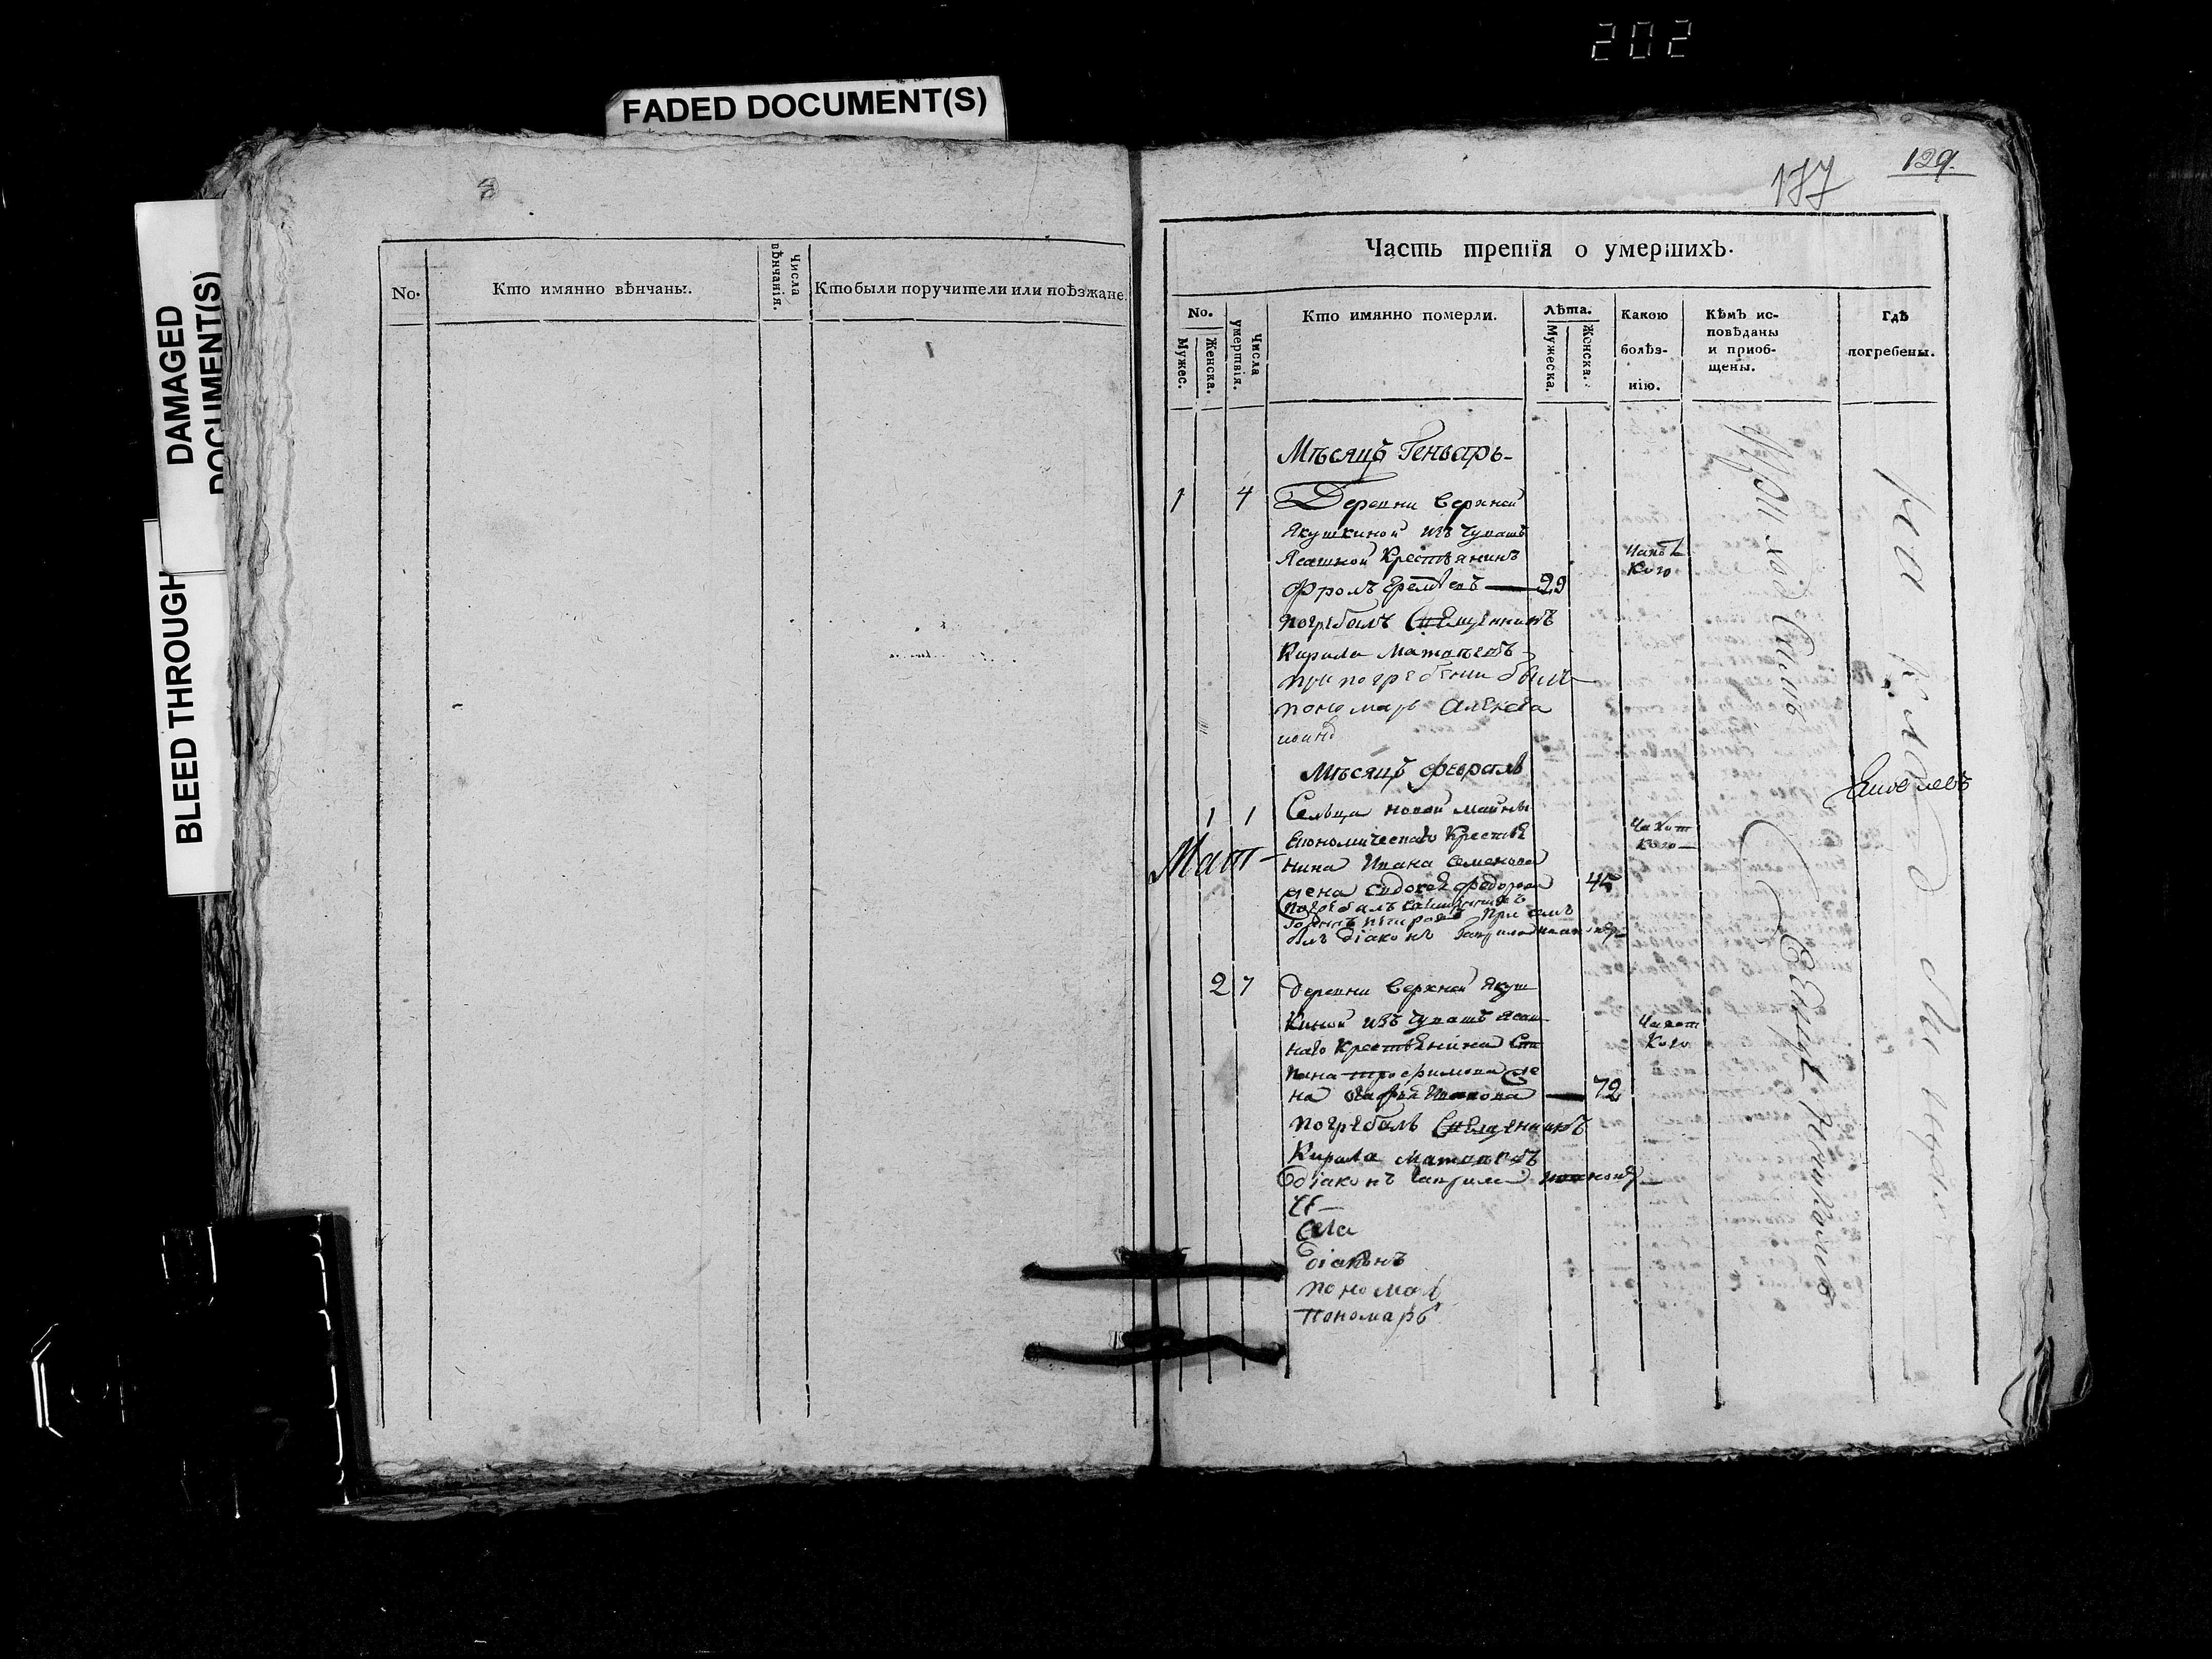 202
FADED DOCUMENT(S)
DAMAGED
DOCUMENT(S)
BLEED THROUGH
No.
Кто имянно вѣнчаны.
Числа
вѣнчанія.
Кто были поручители или поѣзжане.
177
129.
Часть третія о умершихъ.
No.
Мужес.
Женска.
Числа
умертвія.
Кто имянно померли.
Лѣта.
Мужеска.
Женска.
Какою
болѣз-
нію.
Кѣмъ ис-
повѣданы
и пріоб-
щены.
Гдѣ
погребены.
Мѣсяцъ Генварь
1 4 Деревни Верхней
Якушкиной изъ Чувашъ
Ясашной Крестьянинъ
Фролъ Еремѣевъ 29
погребалъ Священникъ
Кирила Матвѣевъ
при погребении былъ
пономарь Алекса
Приходскимъ
Священникомъ
на кладбищи
Мѣсяцъ Февраль
1 1 Сельца новой майны
Економическаго Крестья
нина Ивана Семенова
жена Евдокея Федорова 45
Чахот
кою
погребалъ священникъ
При семъ
былъ діаконъ Гаврила
Мат
Яковлевъ
2 7 деревни Верхней Якуш
киной изъ Чувашъ ясаш
наго Крестьянина Сте
пана трофимова же
на 72
Чахот
кою
погребалъ Священникъ
Кирила Матвѣевъ
діаконъ Гаврила
села
діаконъ
пономар
пономарь